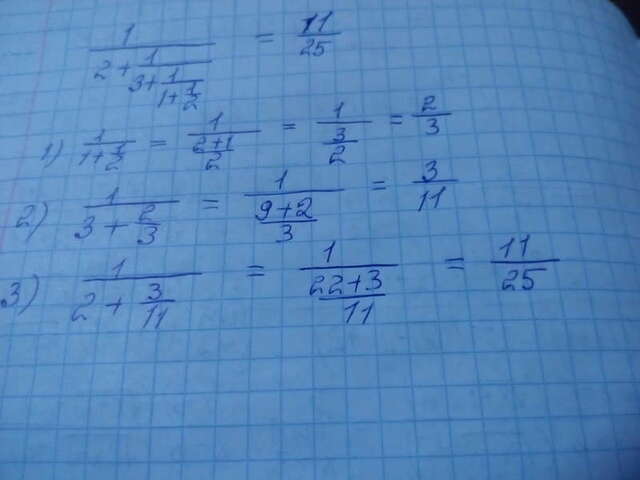 1/(2+1/(3+1/(1+1/2))) = 11/25
1) 1/(1+1/2) = 1/((2+1)/2) = 1/(3/2) = 2/3
2) 1/(3+2/3) = 1/((9+2)/3) = 3/11
3) 1/(2+3/11) = 1/((22+3)/11) = 11/25